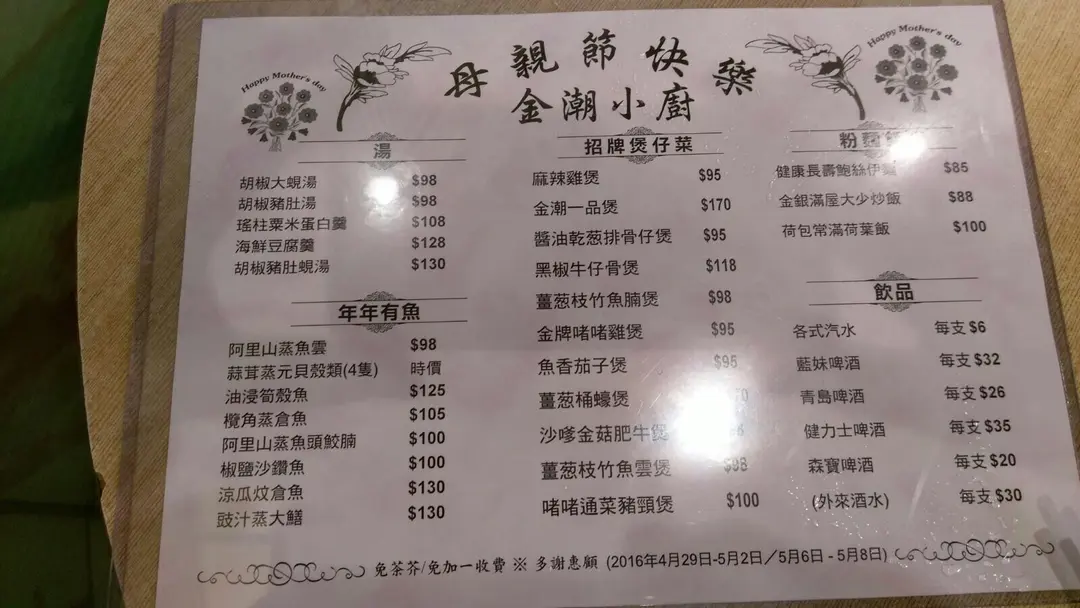 Happy Mother's day
母親節快樂
Happy Mother's day
金潮小廚
湯
胡椒大蜆湯 $98
胡椒豬肚湯 $98
瑤柱粟米蛋白羹 $108
海鮮豆腐羹 $128
胡椒豬肚蜆湯 $130
年年有魚
阿里山蒸魚雲 $98
蒜茸蒸元貝殼類(4隻) 時價
油浸筍殼魚 $125
欖角蒸倉魚 $105
阿里山蒸魚頭鮫腩 $100
椒鹽沙鑽魚 $100
涼瓜炆倉魚 $130
豉汁蒸大鱔 $130
招牌煲仔菜
麻辣雞煲 $95
金潮一品煲 $170
醬油乾葱排骨仔煲 $95
黑椒牛仔骨煲 $118
薑葱枝竹魚腩煲 $98
金牌啫啫雞煲 $95
魚香茄子煲 $95
薑葱桶蠔煲
沙嗲金菇肥牛煲
薑葱枝竹魚雲煲 $98
啫啫通菜豬頸煲 $100
粉麵
健康長壽鮑絲伊麵 $85
金銀滿屋大少炒飯 $88
荷包常滿荷葉飯 $100
飲品
各式汽水 每支 $6
藍妹啤酒 每支 $32
青島啤酒 每支 $26
健力士啤酒 每支 $35
森寶啤酒 每支 $20
(外來酒水) 每支 $30
免茶芥/免加一收費 ※ 多謝惠顧 (2016年4月29日-5月2日／5月6日 - 5月8日)